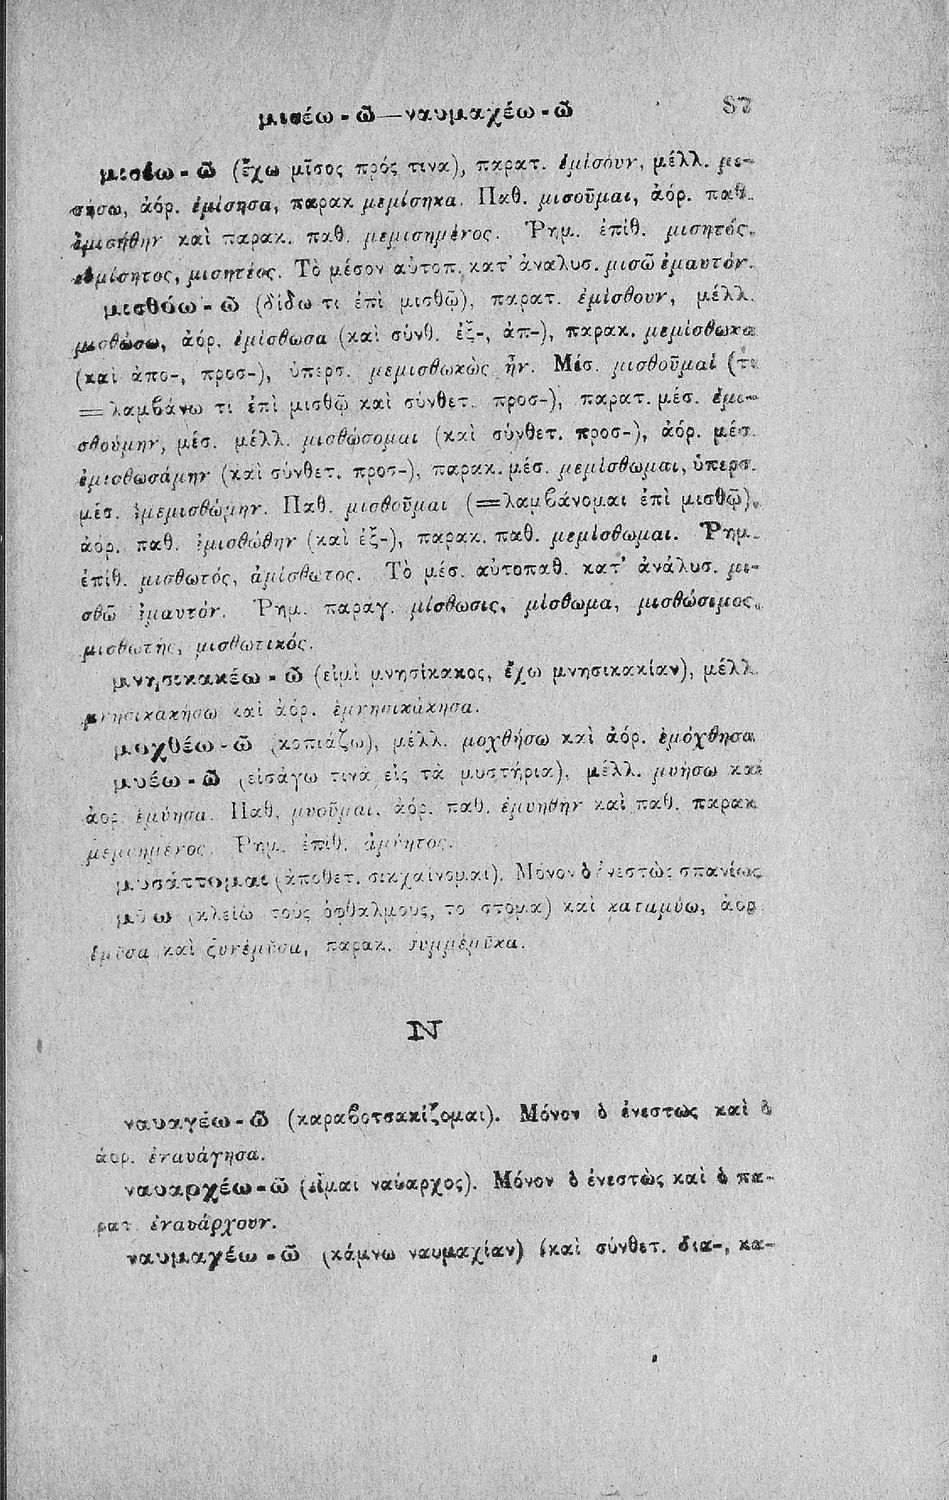 μισέω - ῶ — ναυμαχέω - ῶ 87
μισέω - ῶ (ἔχω μῖσος πρός τινα), παρατ. ἐμίσουν, μέλλ. μι-
σήσω, ἀόρ. ἐμίσησα, παρακ μεμίσηκα. Παθ. μισοῦμαι, ἀόρ. παθ.
ἐμισήθην καὶ παρακ. παθ. μεμισημένος. Ῥημ. ἐπίθ. μισητός,
μισητέος. Τὸ μέσον αὐτοπ. κατ' ἀναλυσ. μισῶ ἐμαυτόν.
μισθόω - ῶ (δίδω τι ἐπὶ μισθῷ), παρατ. ἐμίσθουν, μέλλ.
μισθώσω, ἀόρ. ἐμίσθωσα (καὶ σύνθ. ἐξ-, ἀπ-), παρακ. μεμίσθωκα
(καὶ ἀπο-, προσ-), ὑπερσ. μεμισθωκὼς ἦν. Μέσ. μισθοῦμαί (τι
=λαμβάνω τι ἐπὶ μισθῷ καὶ σύνθετ. προσ-), παρατ. μέσ. ἐμι-
σθούμην, μέσ. μέλλ. μισθώσομαι (καὶ σύνθετ. προσ-), ἀόρ. μέσ.
ἐμισθωσάμην (καὶ σύνθετ. προσ-), παρακ. μέσ. μεμίσθωμαι, ὑπερσ.
μέσ. ἐμεμισθώμην. Παθ. μισθοῦμαι (=λαμβάνομαι ἐπὶ μισθῷ),
ἀόρ. παθ. ἐμισθώθην (καὶ ἐξ-), παρακ. παθ. μεμίσθωμαι. Ῥημ.
ἐπίθ. μισθωτός, ἀμίσθωτος. Τὸ μέσ. αὐτοπαθ. κατ' ἀνάλυσ. μι-
σθῶ ἐμαυτόν. Ῥημ. παραγ. μίσθωσις, μίσθωμα, μισθώσιμος,
μισθωτής, μισθωτικός.
μνησικακέω - ῶ (εἰμὶ μνησίκακος, ἔχω μνησικακίαν), μέλλ.
μνησικακήσω καὶ ἀόρ. ἐμνησικάκησα.
μοχθέω - ῶ (κοπιάζω), μέλλ. μοχθήσω καὶ ἀόρ. ἐμόχθησα
μυέω - ῶ (εἰσάγω τινὰ εἰς τὰ μυστήρια), μέλλ. μυήσω καὶ
ἀορ. ἐμύησα. Παθ. μυοῦμαι, ἀόρ. παθ. ἐμυήθην καὶ παθ. παρακ
μεμυημένος. Ῥημ. ἐπίθ. ἀμύητος.
μυσάττομαι (ἀποθετ. σικχαίνομαι). Μόνον ὁ ἐνεστὼς σπανίως
μύω (κλείω τοὺς ὀφθαλμους, το στομα) καὶ καταμύω, ἀορ
ἔμυσα καὶ ξυνέμυσα, παρακ. συμμέμυκα.
Ν
ναυαγέω - ῶ (καραβοτσακίζομαι). Μόνον ὁ ἐνεστως καὶ ὁ
ἀορ. ἐναυάγησα.
ναυαρχέω - ῶ (εἶμαι ναύαρχος). Μόνον ὁ ἐνεστὼς καὶ ὁ πα-
ρατ. ἐναυάρχουν.
ναυμαχέω - ῶ (κάμνω ναυμαχίαν) (καὶ σύνθετ. δια-, κα-